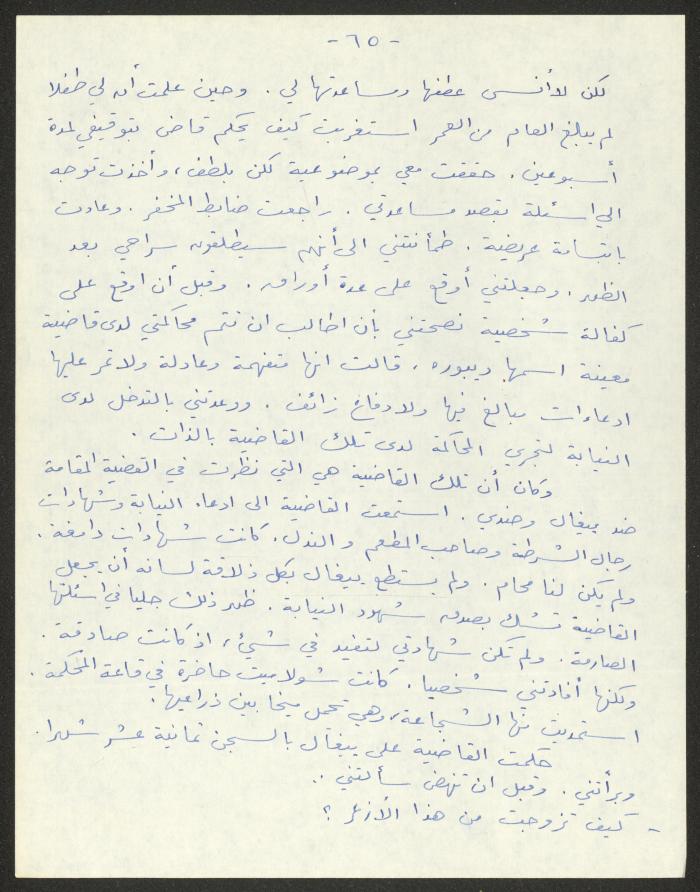 - ٦٥ -
لكن لا أنسى عطفها ومساعدتها لي. وحين علمت أن لي طفلا
لم يبلغ العام من العمر استغربت كيف يحكم قاض بتوقيفي لمدة
أسبوعين. حققت معي بموضوعية لكن بلطف، وأخذت توجه
الي اسئلة بقصد مساعدتي. راجعت ضابط المخفر. وعادت
بابتسامة عريضة. طمأنتني الى أنهم سيطلقون سراحي بعد
الظهر. وجعلتني أوقع على عدة أوراق. وقبل أن اوقع على
كفالة شخصية نصحتني بأن اطالب ان تتم محاكمتي لدى قاضية
معينة اسمها ديبوره. قالت انها متفهمة وعادلة ولا تمر عليها
ادعاءات مبالغ فيها ولا دفاع زائف. ووعدتني بالتدخل لدى
النيابة لتجري المحاكمة لدى تلك القاضية بالذات.
وكان أن تلك القاضية هي التي نظرت في القضية المقامة
ضد ييغال وضدي. استمعت القاضية الى ادعاء النيابة وشهادات
رجال الشرطة وصاحب المطعم والندل. كانت شهادات دامغة.
ولم يكن لنا محام. ولم يستطع ييغال بكل ذلاقة لسانه أن يجعل
القاضية تشك بصدق شهود النيابة. ظهر ذلك جليا في اسئلتها
الصارمة. ولم تكن شهادتي لتفيد في شيء، اذ كانت صادقة.
ولكنها أفادتني شخصيا. كانت شولاميت حاضرة في قاعة المحكمة.
استمديت منها الشجاعة، وهي تحمل ميخا بين ذراعيها.
حكمت القاضية على ييغال بالسجن ثمانية عشر شهرا.
وبرأتني. وقبل ان تنهض سألتني ..
- كيف تزوجت من هذا الأزعر ؟